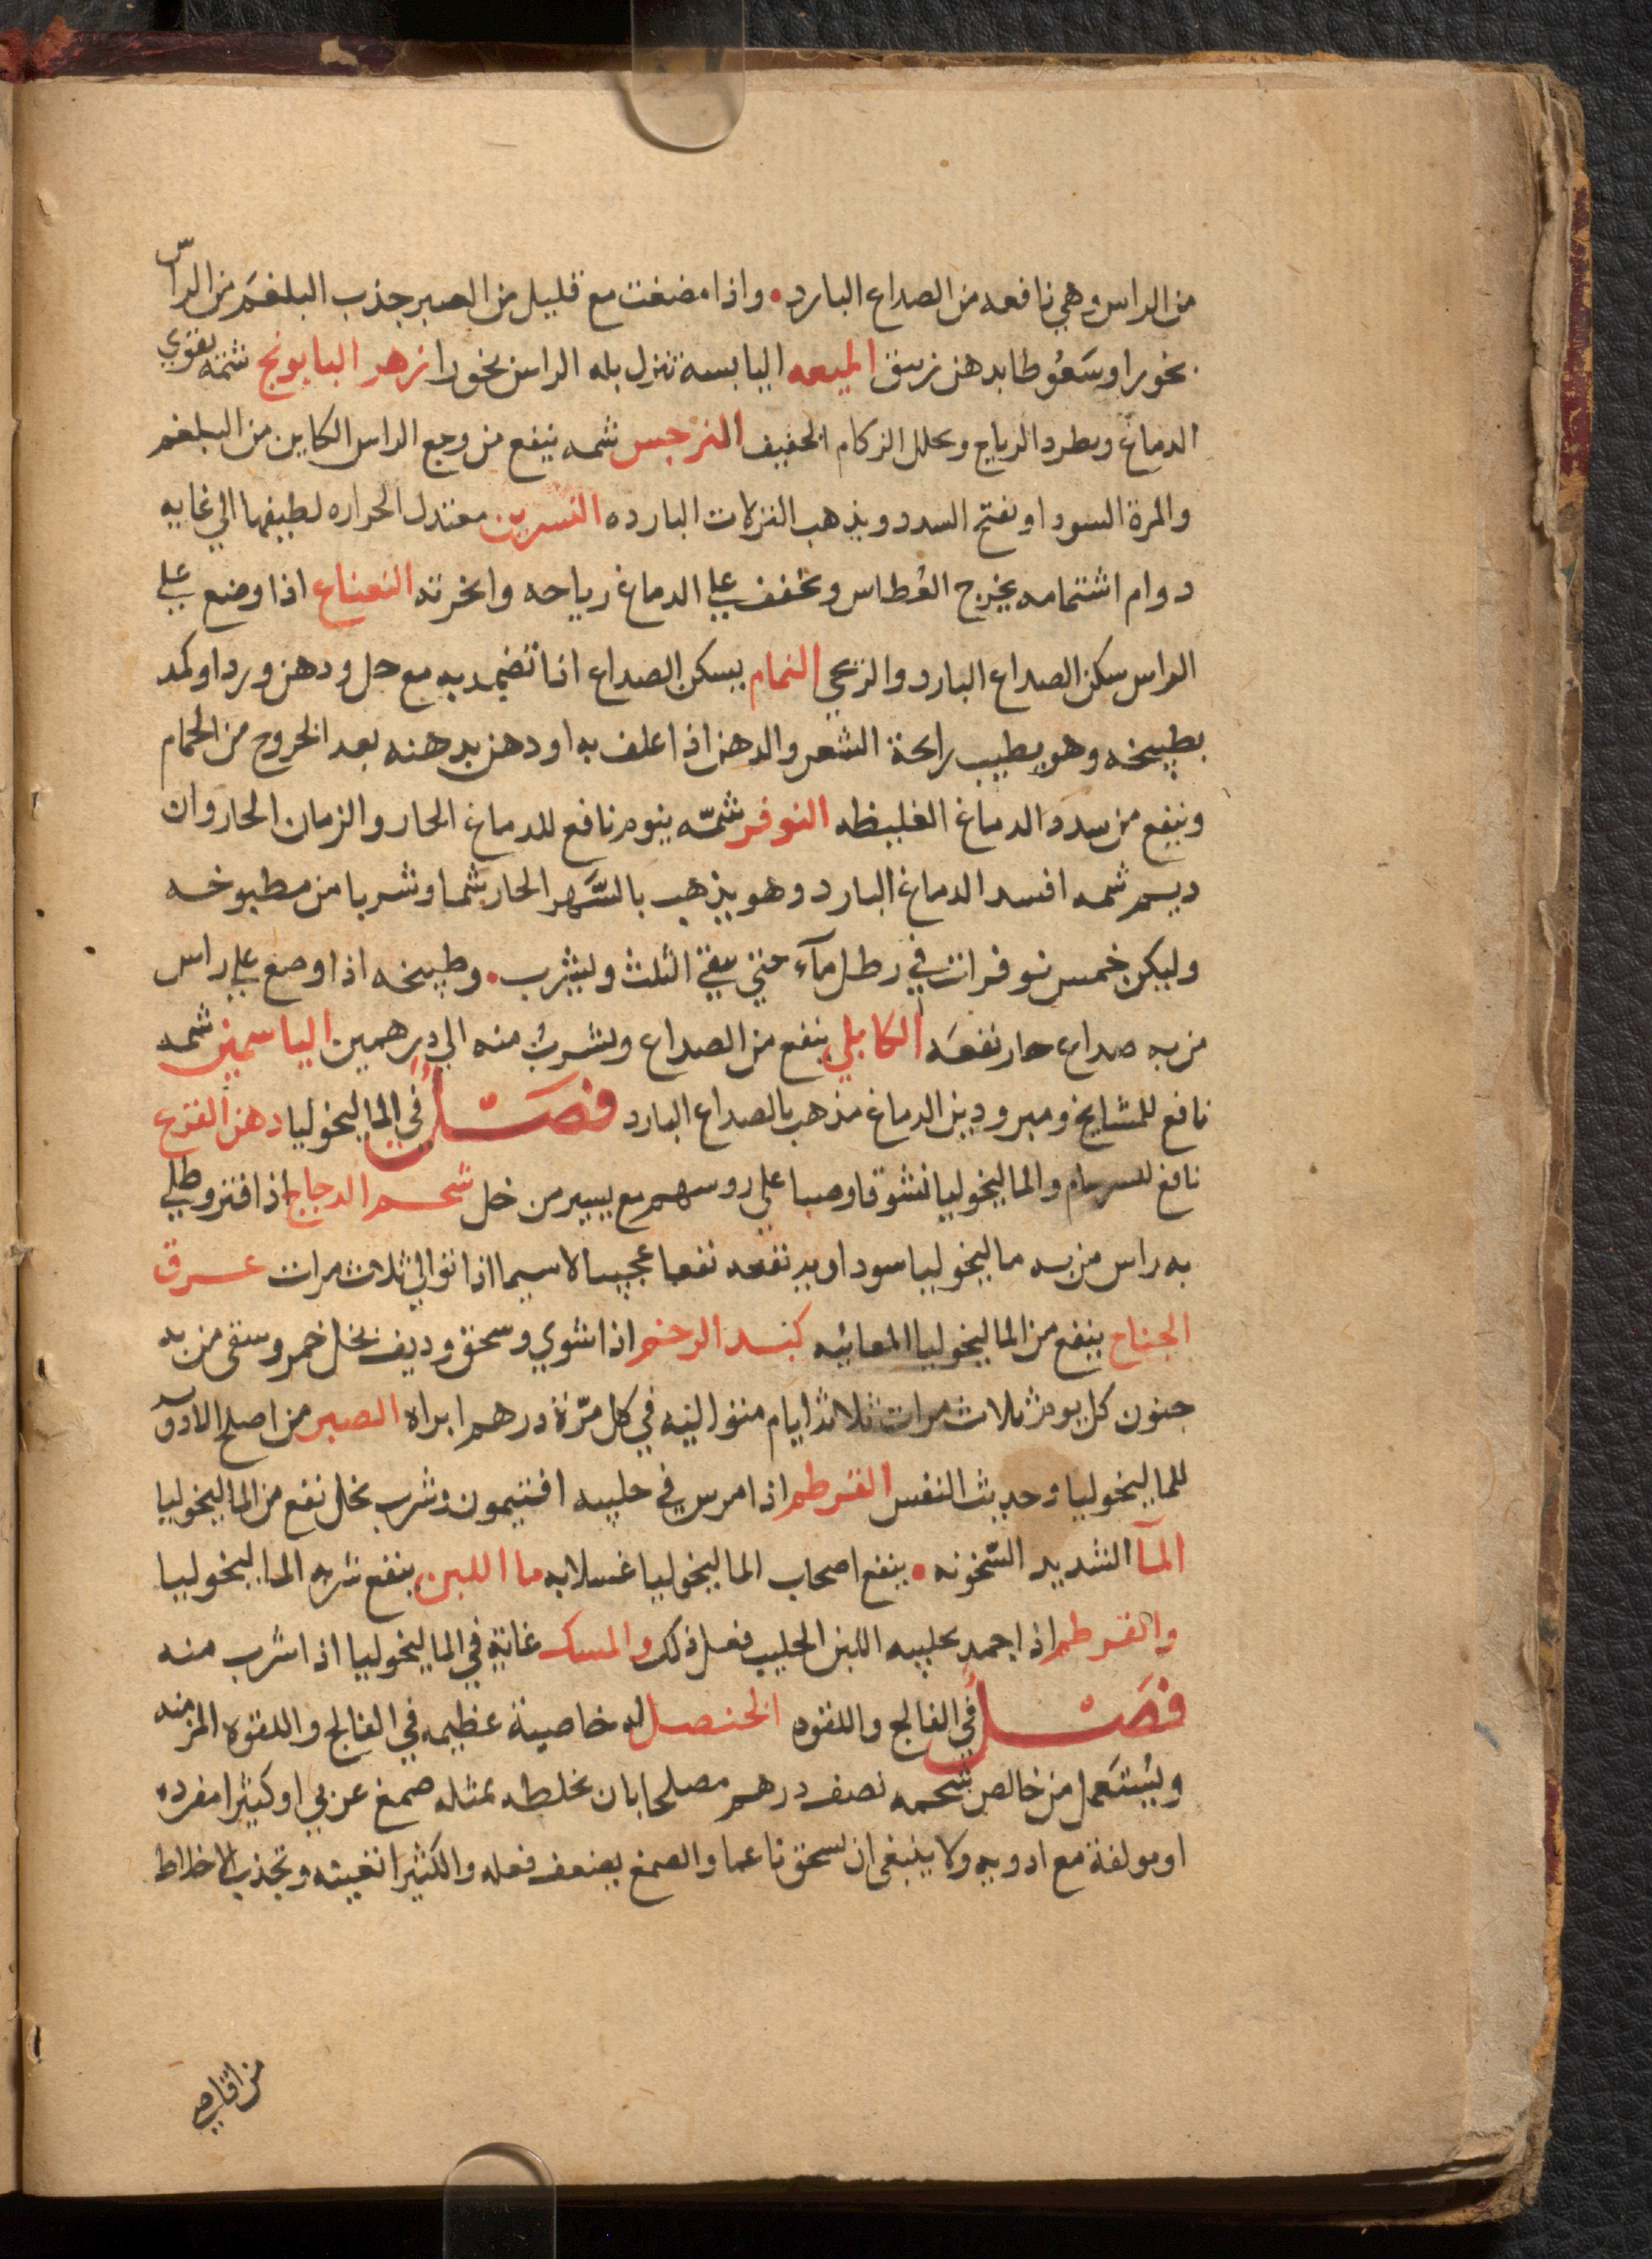 من الراس وهي نافعه من الصداع البارد • واذا مضغت مع قليل من الصبر جذب البلغم من الراس
بخورا وسَعُوطا بدهن زنبق الميعه اليابسه تنزل بله الراس بخورا زهر البابونج شمه يقوي
الدماغ ويطرد الرياح ويحلل الزكام الخفيف النرجس شمه ينفع من وجع الراس الكاين من البلغم
والمرة السودا ويفتح السدد ويذهب النزلات البارده النسرين معتدل الحراره لطيفها الي غايه
دوام اشتمامه يخرج العُطاس ويخفف علي الدماغ رياحه وابخرته النعناع اذا وضع علي
الراس سكن الصداع البارد والريحي النمام يسكن الصداع اذا تضمد به مع خل ودهن ورد او كمد
بطبيخه وهو يطيب رايحة الشعر والدهن اذا علف به او دهن بدهنه بعد الخروج من الحمام
وينفع من سدد الدماغ الغليظه النوفر شمّه ينوم نافع للدماغ الحار والزمان الحار وان
ديم شمه افسد الدماغ البارد وهو يذهب بالسَّهر الحار شما وشربا من مطبوخه
وليكن خمس نوفرات في رطل مآء حتي يبقي الثلث ويشرب • وطبيخه اذا وضع علي راس
من به صداع حار نفعَه الكابلي ينفع من الصداع ويشربُ منه الي درهمين الياسمين شمه
نافع للمشايخ ومبرودين الدماغ مذهب بالصداع البارد فصَـْـلٌ في الماليخوليا دهن القرع
نافع للسرسام والماليخوليا نشوقا وصبا على روسهم مع يسير من خل شحم الدجاج اذا فتر وطلي
به راس من به ماليخوليا سوداويه نفعه نفعا عجيبا لاسيما اذا توالي ثلاث مرات عرق
الجناح ينفع من الماليخوليا المعائيه كبد الرخم اذا شوي وسحق وديف بخل خمر وسقى من به
جنون كل يوم ثلاث مرات ثلاثة ايام متواليه في كل مرّة درهم ابراه الصبر من اصلح الادويه
للماليخوليا وحديث النفس القرطم اذا مرس في حليبه افتيمون وشرب بخل نفع من الماليخوليا
المآ الشديد السّخونه • ينفع اصحاب الماليخوليا غسلا به ما اللبن ينفع شربه الماليخوليا
والقرطم اذا جمد بحليبه اللبن الحليب فعل ذلك والمسك غاية في الماليخوليا اذا شرب منه
فصَـْـلٌ في الفالج واللقوه الحنضل له خاصية عظيمه في الفالج واللقوه المزمنه
ويُستَعمل من خالص شحمه نصف درهم مصلحا بان يخلطه بمثله صمغ عربي او كثيرا مفرده
او مولفة مع ادويه ولا ينبغي ان يسحق ناعما والصمغ يضعف فعله والكثيرا تغيثه وتجذب الاخلاط
من اقاصي